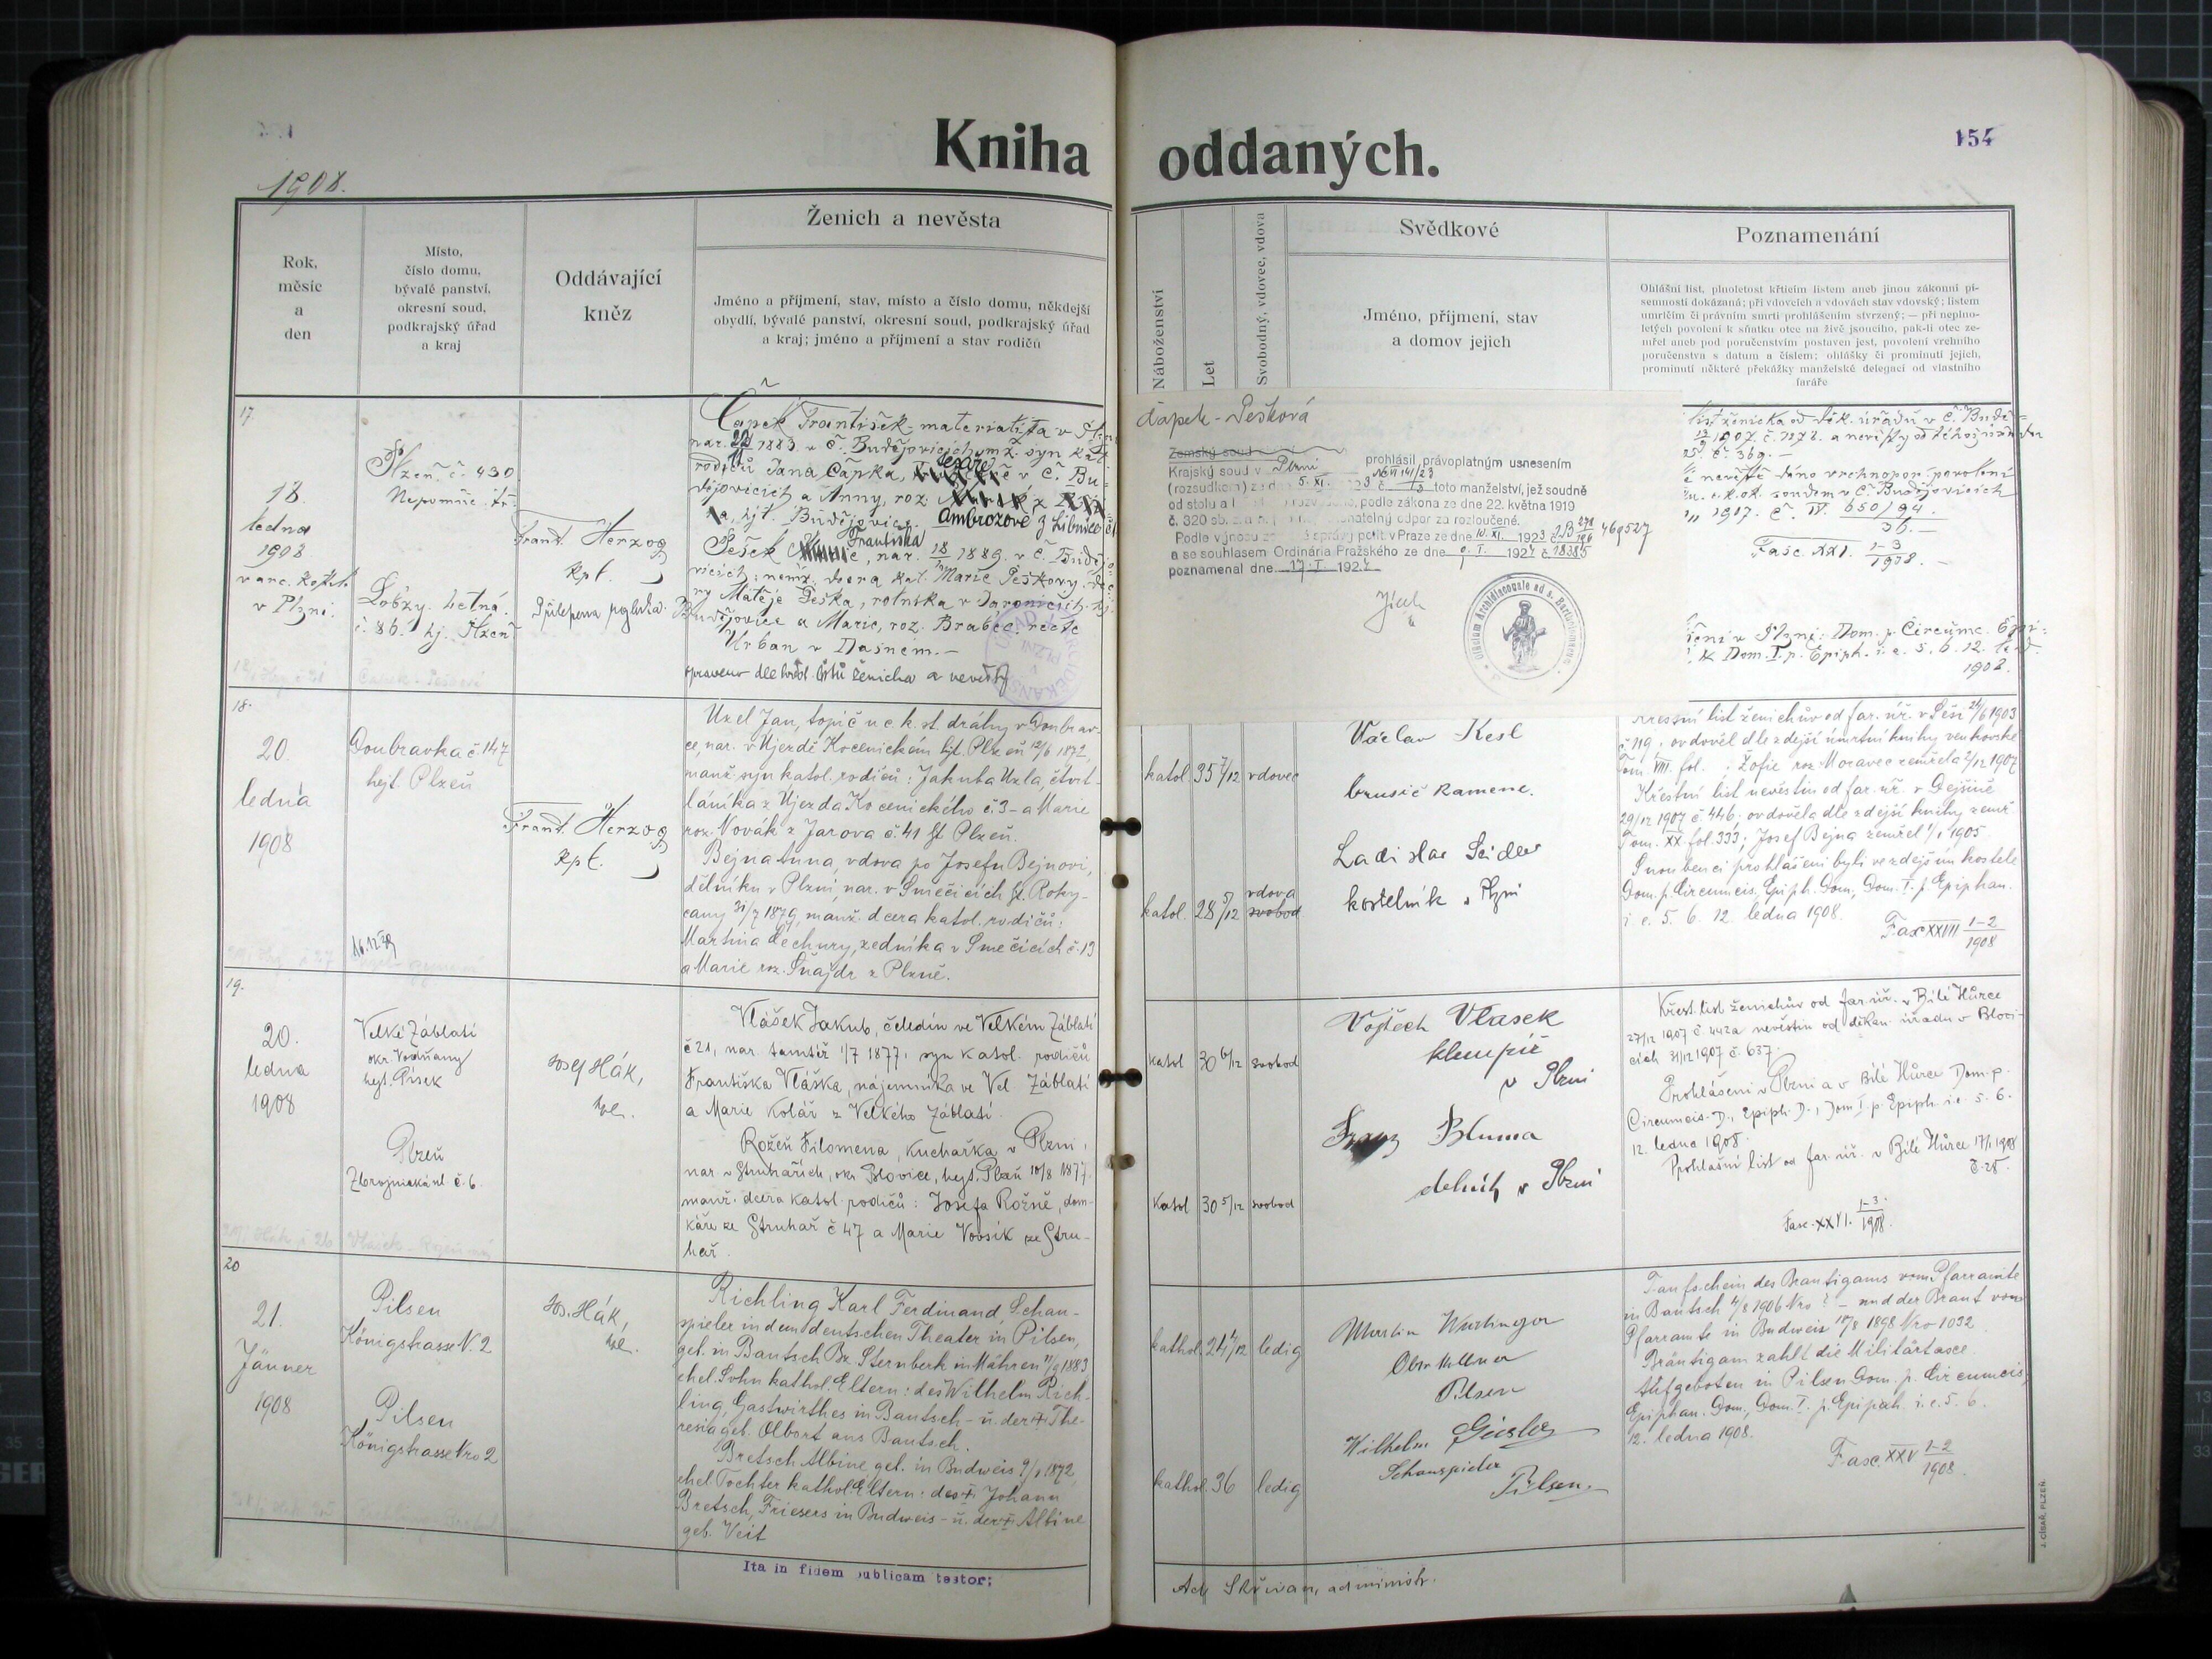 Kniha oddaných.
154
1908.
Rok,
měsíc
a
den
Místo,
číslo domu,
bývalé panství,
okresní soud,
podkrajský úřad
a kraj
Oddávající
kněz
Ženich a nevěsta
Jméno a příjmení, stav, místo a číslo domu, někdejší
obydlí, bývalé panství, okresní soud, podkrajský úřad
a kraj; jméno a příjmení a stav rodičů
Náboženství
Let
Svobodný, vdovec, vdova
Svědkové
Jméno, příjmení, stav
a domov jejich
Poznamenání
Ohlášní list, plnoletost křticím listem aneb jinou zákonní pí-
semností dokázaná; při vdovcích a vdovách stav vdovský; listem
umrlčím či právním smrti prohlášením stvrzený; — při neplno-
letých povolení k sňatku otce na živě jsoucího, pak-li otec ze-
mřel aneb pod poručenstvím postaven jest, povolení vrchního
poručenstva s datum a číslem; ohlášky či prominutí jejich,
prominutí některé překážky manželské delegací od vlastního
faráře
17
18.
ledna
1908
v arc. kostele
v Plzni.
Plzeň č. 430
Nepomuc. tř.
Lobzy. Letná.
č. 86. hj. Plzeň
Frant. Herzog
kpt.
Čapek František, materialista v
nar. 1883 v Č. Budějovicích, mž. syn kat.
rodičů Jana Čapka, tesaře v Č. Bu-
dějovicích a Anny, roz.
hjt. Budějovice. Ambrožové z Libníče
Pešek Františka, nar. 18 1889 v Č. Budějo-
vicích, nemž. dcera kat. Marie Peškovy, dce-
ry Matěje Peška, rolníka v
Budějovice a Marie, roz. Brabec recte
Urban v Dasném.—
opraveno dle křest. listů ženicha a nevěsty
Čapek - Pešková
Zemský soud
Krajský soud v Plzni prohlásil právoplatným usnesením
(rozsudkem) ze dne 5. XI. toto manželství, jež soudně
od stolu a podle zákona ze dne 22. května 1919
č. 320 sb. odpor za rozloučené.
Podle výnosu zprávy polit v Praze ze dne 10. XI. 1923
a se souhlasem Ordinária Pražského ze dne 9. I. 1924 č. 18385
poznamenal dne 17. I. 192
list ženicha od děk. úřadu v Č. Budě-
1907. č. 1278. a nevěsty od téhož úřadu
č. 369.—
nevěstě dáno vrchnopor. povolení
c. k. ok. soudem v Č. Budějovicích
1917. č. IV. 650/94.
36.—
Fasc. XXI. 1-3
1908.—
v Plzni: Dom. p. Circumc. Epi-
Dom. I. p. Epiph. i. e. 5. 6. 12. led.
1908.
18.
20.
ledna
1908
Doubravka č. 147
hejt. Plzeň
16.12.39
Frant. Herzog
kpt.
Uzel Jan, topič u c. k. st. dráhy v Doubrav-
ce, nar. v Újezdě Kocenickém hjt. Plzeň 12/6 1872,
manž. syn katol. rodičů: Jakuba Uzla, čtvrt-
láníka z Újezda Kocenického č. 3 – a Marie
roz. Novák z Jarova č. 41 hjt. Plzeň.
Bejna Anna, vdova po Josefu Bejnovi,
dělníku v Plzni, nar. v Smečicích hjt. Roky-
cany 31/7 1879, manž. dcera katol. rodičů:
Martina Dechury, zedníka v Smečicích č. 13
a Marie roz. Šnajdr z Plzně.
katol. 35 7/12 vdovec
katol. 28 5/12 vdova
svobod
Václav Kesl
brusič kamene.
Ladislav Seidler
kostelník v Plzni
Křestní list ženichův od far. úř. v 24/6 1903
č. 119; ovdověl dle zdejší úmrtní knihy venkovské
Tom. VIII. fol. : Žofie roz. Moravec zemřela 2/12 1907
Křestní list nevěstin od far. úř. v Dejšině
29/12 1907 č. 446; ovdověla dle zdejší knihy zemř.
Tom. XX. fol. 333; Josef Bejna zemřel 1/1 1905.
Snoubenci prohlášeni byli ve zdejším kostele
Dom. p. Circumcis. Epiph. Dom., Dom. I. p. Epiphan.
i. e. 5. 6. 12. ledna 1908.
Fasc XXIII 1-2
1908
19.
20.
ledna
1908
Velké Záblatí
okr. Vodňany
hejt. Písek
Plzeň
Zbrojnická ul č. 6.
Josef Hák,
Vlášek Jakub, čeledín ve Velkém Záblatí
č 21, nar. tamtéž 1/7 1877, syn katol. rodičů
Františka Vláška, nájemníka ve Vel. Záblatí
a Marie Kolář z Velkého Záblatí.
Rožeň Filomena, kuchařka v Plzni,
nar. v Struhařích, okr. Blovice, hejt. Plzeň 10/8 1877
manž. dcera katol. rodičů: Josefa Rožně, dom-
káře ze Struhař č 47 a Marie Vovsík ze Stru-
hař.
katol 30 6/12 svobod
katol 30 5/12 svobod
Vojtěch Vlasek
klempíř
v Plzni
Franz Bluma
dělník v Plzni
Křest. list ženichův od far. úř. v Bílé Hůrce
27/12 1907 č. 442a nevěstin od děkan. úřadu v Bloví-
cích 31/12 1907 č. 637.
Prohlášeni v Plzni a v Bílé Hůrce Dom. p.
Circumcis. D., Epiph. D., Dom I. p. Epiph. i. e. 5. 6.
12. ledna 1908.
Prohlašní list od far. úř. v Bílé Hůrce 17/1 1908
č. 25.
Fasc. XXVI. 1-3
1908.
20
21.
Jänner
1908
Pilsen
Königstrasse N. 2
Pilsen
Königstrasse Nro 2
Jos. Hák,
Richling Karl Ferdinand, Schau-
spieler in dem deutschen Theater in Pilsen,
geb. in Bautsch Bz. Sternberk in Mähren 11/9 1883
ehel. Sohn kathol. Eltern: des Wilhelm Rich-
ling, Gastwirthes in Bautsch – u. der + The-
resia geb. Olbort aus Bautsch.
Bretsch Albine geb. in Budweis 9/1 1872,
ehel. Tochter kathol. Eltern: des + Johann
Bretsch, Friesers in Budweis – u. der + Albine
geb. Veit
kathol. 24 4/12 ledig
kathol. 36 ledig
Oberkellner
Pilsen
Wilhelm
Schauspieler
Pilsen
Taufschein des Bräutigams vom Pfarramte
in Bautsch 4/8 1906 Nro ? – und der Braut vom
Pfarramte in Budweis 10/8 1898 Nro 1032
Bräutigam zahlt die Militärtaxe.
Aufgeboten in Pilsen Dom. p. Circumcis,
Epiphan. Dom., Dom. I. p. Epipah. i. e. 5. 6.
12. ledna 1908.
Fasc. XXV 1-2
1908.
Ita in fidem publicam testor:
Ad. Skřivan, administr.
J. CÍSAŘ, PLZEŇ.